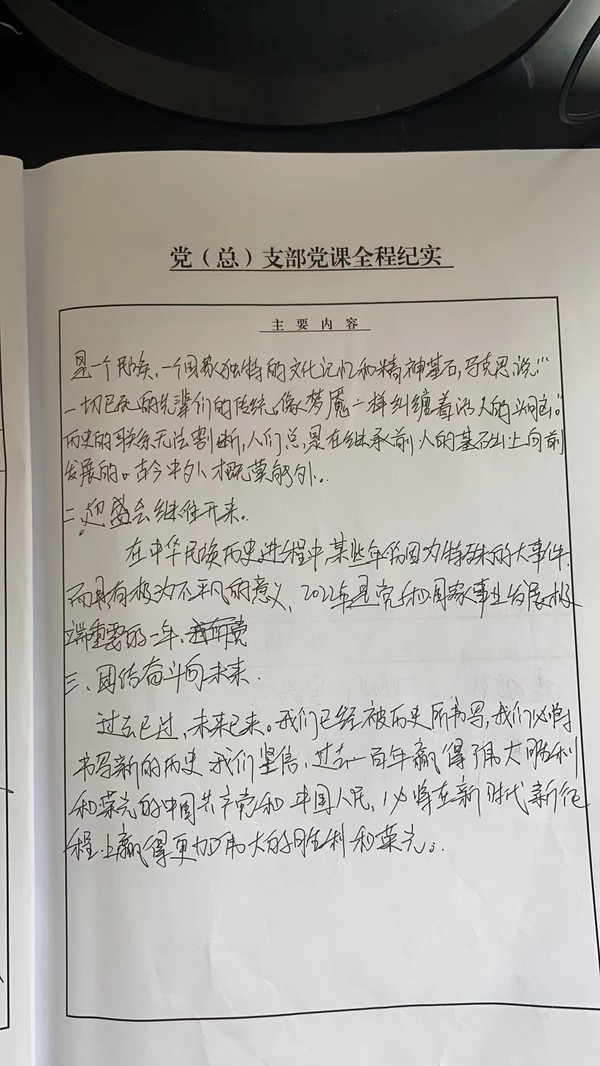 党（总）支部党课全程纪实
主要内容
是一个民族、一个国家独特的文化记忆和精神基石，马克思说："
一切已死的先辈们的传统，像梦魇一样纠缠着活人的头脑。"
历史的联系无法割断，人们总是在继承前人的基础上向前
发展的。古今中外，概莫能外。
二、迎盛会继往开来。
在中华民族历史进程中，某些年份因为特殊的大事件
而具有极为不平凡的意义、2022年是党和国家事业发展极
端重要的一年、
三、团结奋斗向未来.
过去已过，未来已来。我们已经被历史所书写，我们必将
书写新的历史 我们坚信，过去一百年赢得了伟大胜利
和荣光的中国共产党和中国人民，必将在新时代新征
程上赢得更加伟大的胜利和荣光。